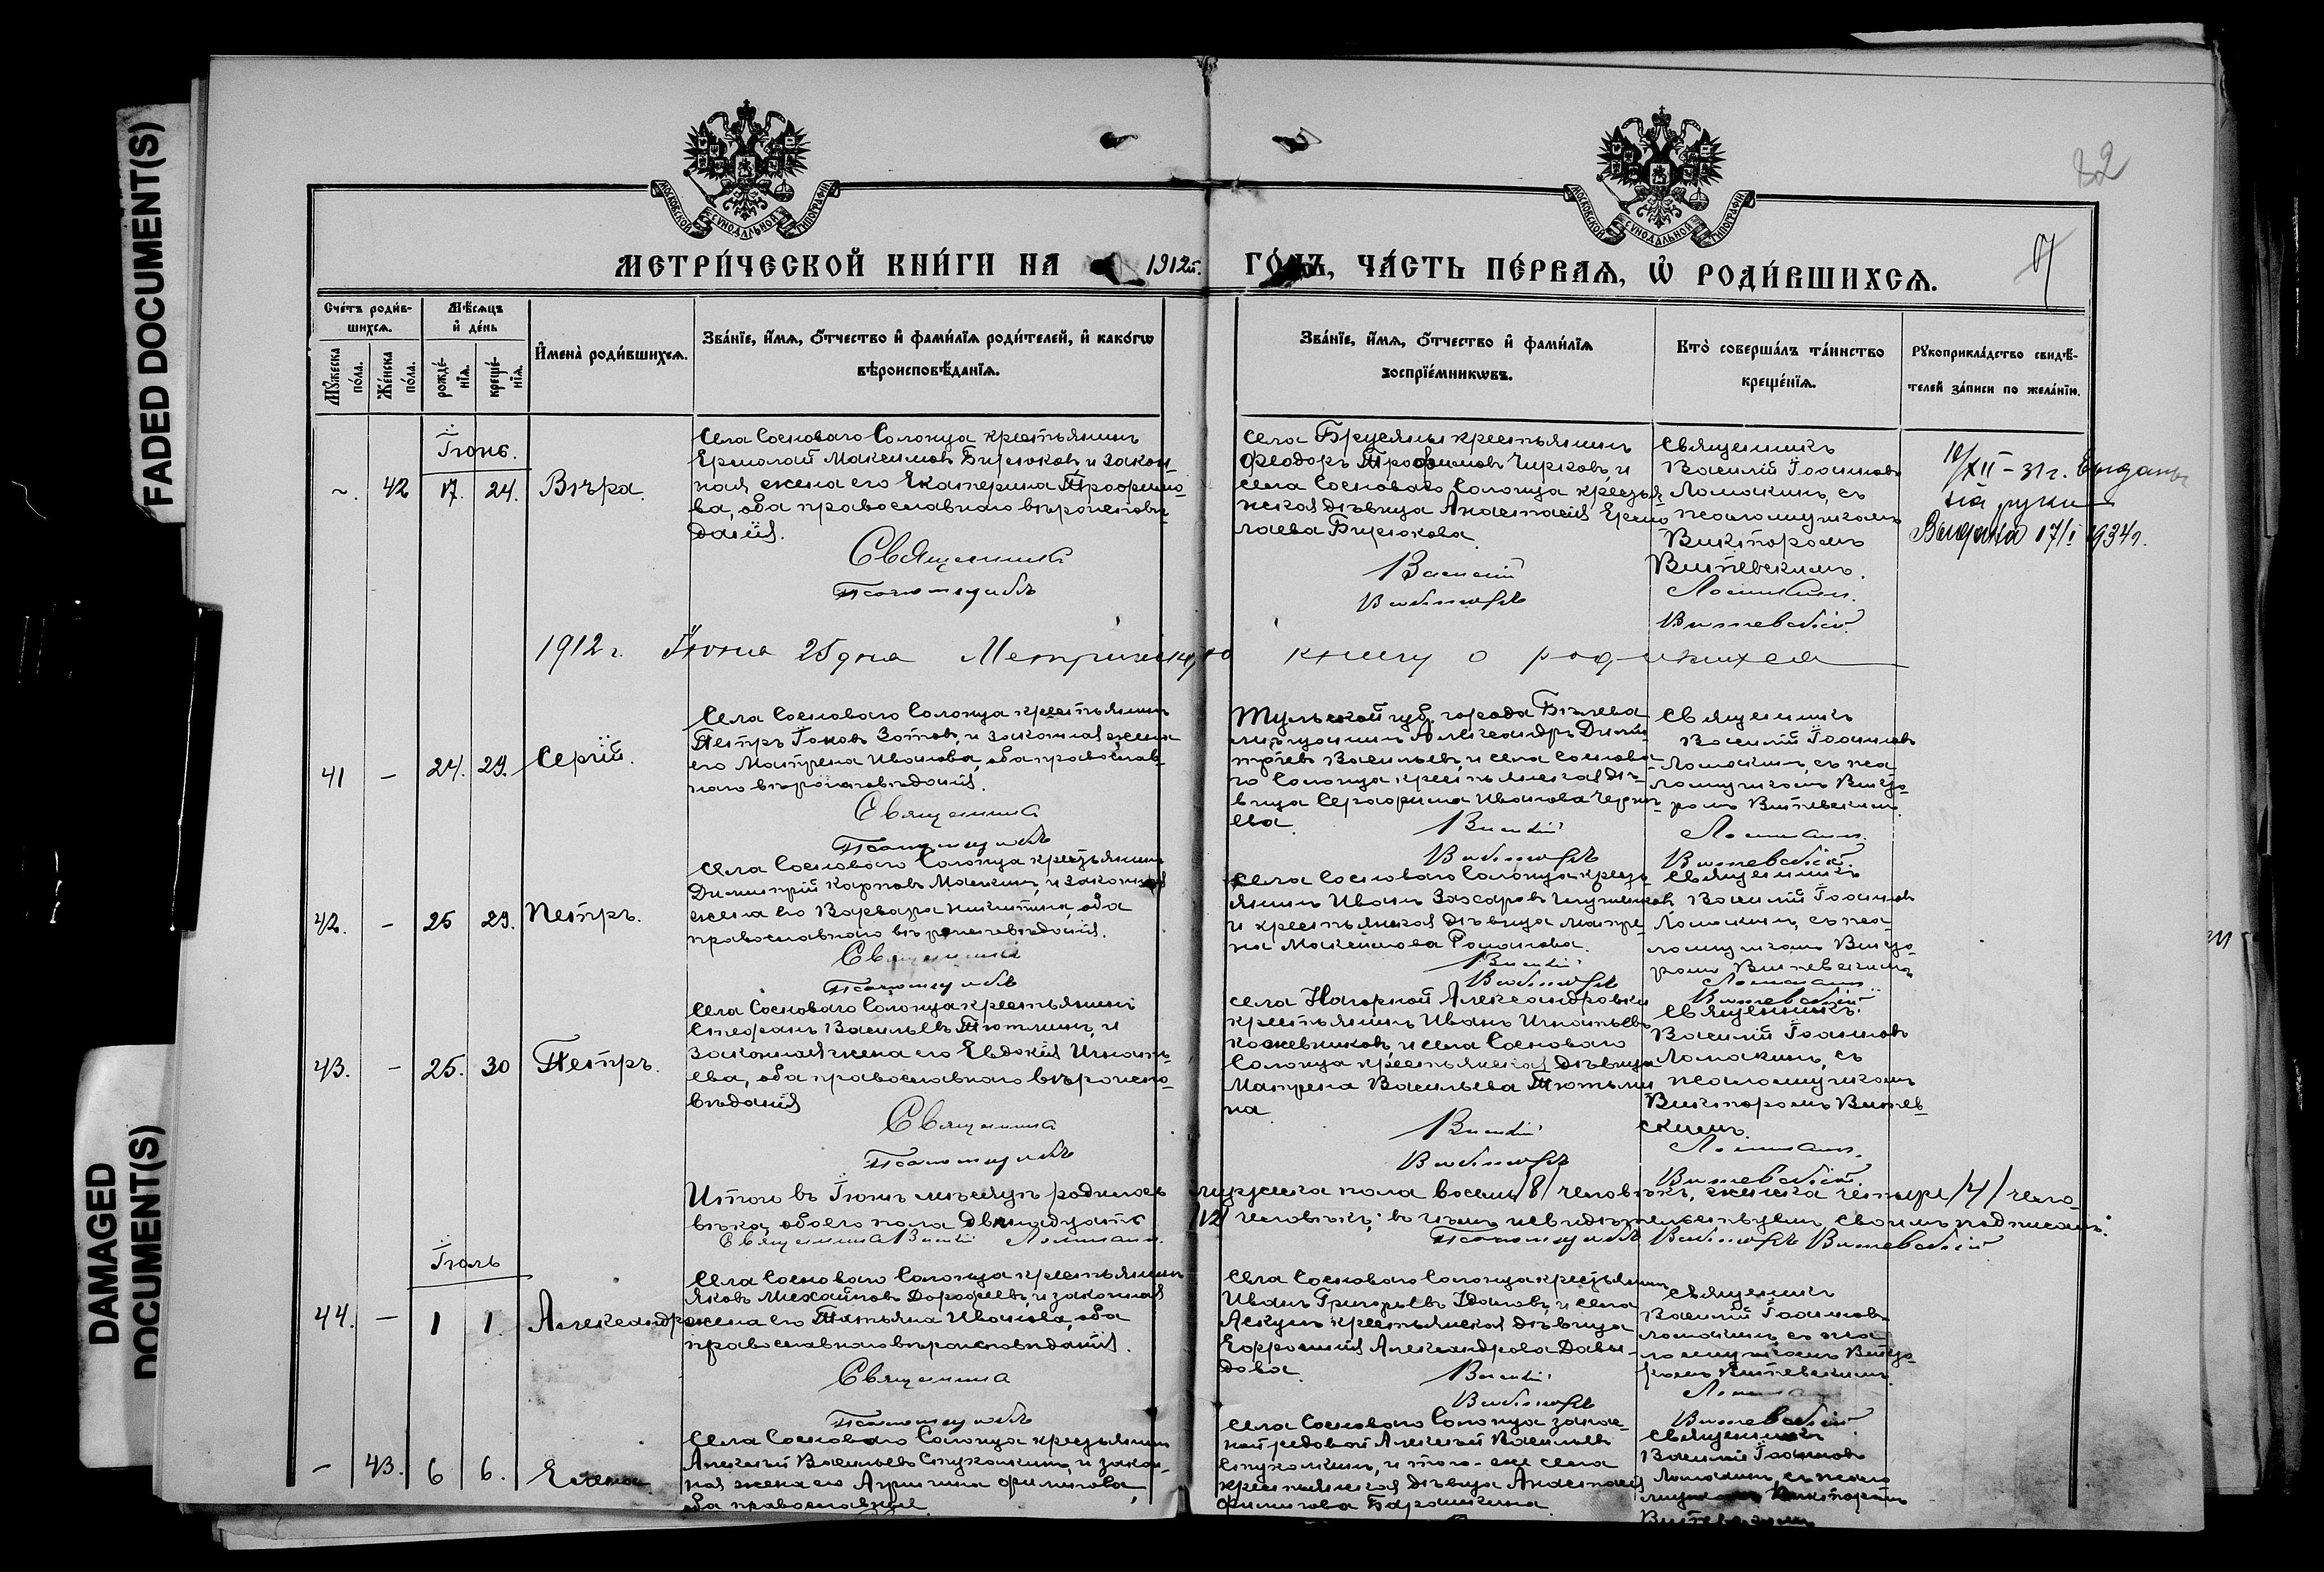 FADED DOCUMENT(S)
DAMAGED
DOCUMENT(S)
МОСКОВСКОЙ СУНОДАЛЬНОЙ ТИПОГРАФІИ
МОСКОВСКОЙ СУНОДАЛЬНОЙ ТИПОГРАФІИ
МЕТРИ́ЧЕСКОЙ КНИ́ГИ НА 1912й. ГО́ДЪ, ЧА́СТЬ ПЕ́РВАѦ, Ѡ҆ РОДИ́ВШИХСѦ.
Сче́тъ роди́в-
шихсѧ.
Мꙋ́жеска по́ла.
Же́нска по́ла.
Мѣ́сѧцъ
и҆ де́нь
рожде́-
нїѧ.
креще́-
нїѧ.
И҆мена̀ роди́вшихсѧ.
Зва́нїе, и҆́мѧ, ѻ҆́тчество и҆ фами́лїѧ роди́телей, и҆ како́гѡ
вѣроисповѣ́данїѧ.
Зва́нїе, и҆́мѧ, ѻ҆́тчество и҆ фами́лїѧ
воспрїе́мникѡвъ.
Кто̀ соверша́лъ та́инство
креще́нїѧ.
Рꙋкоприкла́дство свидѣ́-
телей за́писи по жела́нїю.
Іюнь.
~. 42 17. 24. Вѣра.
Села Сосноваго Солонца крестьянинъ
Ермолай Максимовъ Бирюковъ, и закон-
ная жена его Екатерина Трофимо-
ва, оба православнаго вѣроисповѣ-
данія.
Священникъ
Псаломщикъ
Села Брусяны крестьянинъ
Феодоръ Трофимовъ Чирковъ, и
села Сосноваго Солонца крестья-
нская дѣвица Анастасія Ермо-
лаева Бирюкова.
Василій
Викторъ
Священникъ
Василій Іоанновъ
Ломакинъ, съ
псаломщикомъ
Викторомъ
Витевскимъ.
Ломакинъ.
Витевскій.
10/XII-31г. Выданъ
на руки
Выдана 17/I 1934г.
1912 г. Іюня 25 дня Метрическую книгу о родившихся
41 – 24. 29. Сергій.
Села Сосноваго Солонца крестьянинъ
Петръ Іоновъ Зотовъ, и законная жена
его Матрена Иванова, оба православ-
наго вѣроисповѣданія.
Священникъ
Псаломщикъ
Тульской губ. города Бѣлева
мѣщанинъ Александръ Дими-
тріевъ Васильевъ, и села Соснова-
го Солонца крестьянская дѣ-
вица Серафима Иванова
Василій
Викторъ
Священникъ
Василій Іоанновъ
Ломакинъ, съ пса-
ломщикомъ Викто-
ромъ Витевскимъ.
Ломакинъ.
Витевскій.
42. – 25 29. Петръ.
Села Сосноваго Солонца крестьянинъ
Димитрій Карповъ Маскинъ, и законная
жена его Варвара Никитина, оба
православнаго вѣроисповѣданія.
Священникъ
Псаломщикъ
Села Сосноваго Солонца кресть-
янинъ Иванъ Захаровъ
и крестьянская дѣвица Матре-
на Максимова Романова.
Василій
Викторъ
Священникъ
Василій Іоанновъ
Ломакинъ, съ пса-
ломщикомъ Викто-
ромъ Витевскимъ
Ломакинъ.
Витевскій.
43. – 25. 30 Петръ.
Села Сосноваго Солонца крестьянинъ
Стефанъ Васильевъ Тютлинъ, и
законная жена его Евдокія Игнать-
ева, оба православнаго вѣроиспо-
вѣданія
Священникъ
Псаломщикъ
села Нагорной Александровки
крестьянинъ Иванъ Игнатьевъ
Кожевниковъ, и села Сосноваго
Солонца крестьянская дѣвица
Матрена Васильева Тютли-
на
Василій
Викторъ
Священникъ
Василій Іоанновъ
Ломакинъ, съ
псаломщикомъ
Викторомъ Витев-
скимъ.
Ломакинъ.
Витевскій.
Итого въ Іюнѣ мѣсяцѣ родилось мужеска пола восемь /8/ человѣкъ, женска четыре /4/ чело-
вѣка, обоего пола двѣнадцать /12/ человѣкъ; въ чемъ и свидѣтельствуемъ своимъ подписомъ:
Священникъ Василій Ломакинъ. Псаломщикъ Викторъ Витевскій
Іюль
44. – 1 1. Александръ
Села Сосноваго Солонца крестьянинъ
Яковъ Михайловъ Дорофеевъ, и законная
жена его Татьяна Иванова, оба
православнаго вѣроисповѣданія.
Священникъ
Псаломщикъ
Села Сосноваго Солонца крестьянинъ
Иванъ Григорьевъ и села
Аскулъ крестьянская дѣвица
Евфросинія Александрова Давы-
дова.
Василій
Викторъ
Священникъ
Василій Іоанновъ
Ломакинъ, съ пса-
ломщикомъ Викто-
ромъ Витевскимъ.
Ломакинъ
Витевскій
– 43. 6 6. Елена.
Села Сосноваго Солонца крестьянинъ
Алексѣй Васильевъ Стуколкинъ, и закон-
ная жена его Агриппина Филиппова,
оба православные.
Села Сосноваго Солонца запас-
ной рядовой Алексѣй Васильевъ
Стуколкинъ, и того-же села
крестьянская дѣвица Анастасія
Филиппова
Священникъ
Василій Іоанновъ
Ломакинъ, съ псало-
мщикомъ Викторомъ
Витевскимъ